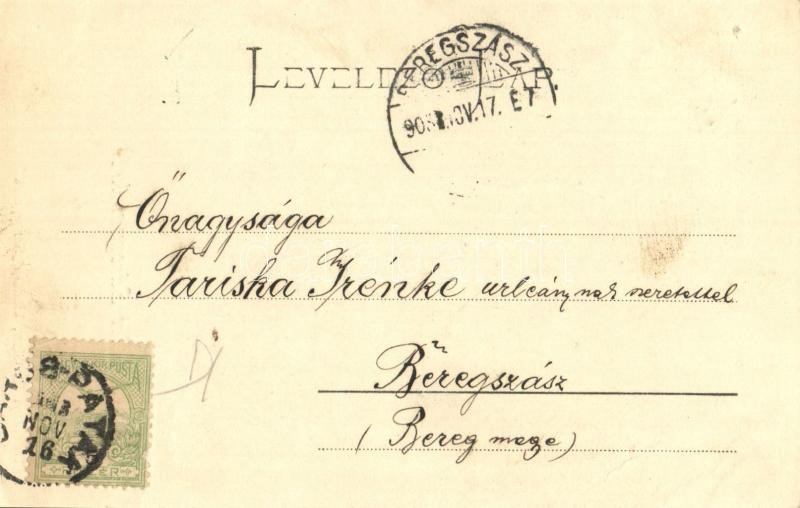 LEVELEZŐ-LAP.
BEREGSZÁSZ
903 NOV. 17. E7
Őnagysága
Tariska Irénke urleánynak szeretettel
Beregszász
(Bereg mege)
PATAK
NOV
16